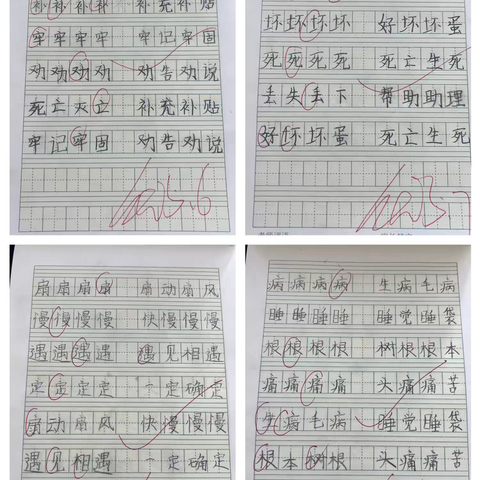 补补补补 补充补贴
牢牢牢牢 牢记牢固
劝劝劝劝 劝告劝说
死亡灭亡 补充补贴
牢记牢固 劝告劝说
5.6
坏坏坏坏 好坏坏蛋
死死死死 死亡生死
丢失丢下 帮助助理
好坏坏蛋 死亡生死
5.7
扇扇扇扇 扇动扇风
慢慢慢慢 快慢慢慢
遇遇遇遇 遇见相遇
定定定定 一定确定
扇动扇风 快慢慢慢
遇见相遇 一定确定
病病病病 生病毛病
睡睡睡睡 睡觉睡袋
根根根根 树根根本
痛痛痛痛 头痛痛苦
生病毛病 睡觉睡袋
根本树根 头痛痛苦